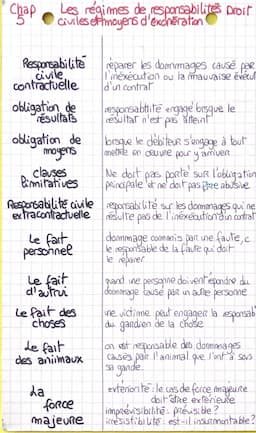 Chap 5 Les régimes de responsabilités Droit
civiles et moyens d'exonération
Responsabilité réparer les dommages causé par
civile l'inexécution ou la mauvaise
contractuelle d'un contrat
obligation de responsabilité engagé lorsque le
résultats résultat n'est pas atteint
obligation de lorsque le débiteur s'engage à tout
moyens mettre en oeuvre pour y arriver
clauses Ne doit pas porté sur l'obligation
limitatives principale et ne doit pas être abusive
Responsabilité civile responsabilité sur les dommages qui ne
extracontractuelle résulte pas de l'inexécution d'un contrat
Le fait dommage commis par une faute,
personnel le responsable de la faute qui doit
le réparer
Le fait quand une personne doivent répondre du
d'autrui dommage causé par un autre personne
Le fait des une victime peut engager la
choses du gardien de la chose
Le fait on est responsable des dommages
des animaux causés par l'animal que l'on a sous
sa garde
La extériorité : le cas de force majeure
force doit être extérieure
majeure imprévisibilité : prévisible ?
irrésistibilité : est-il insurmontable ?